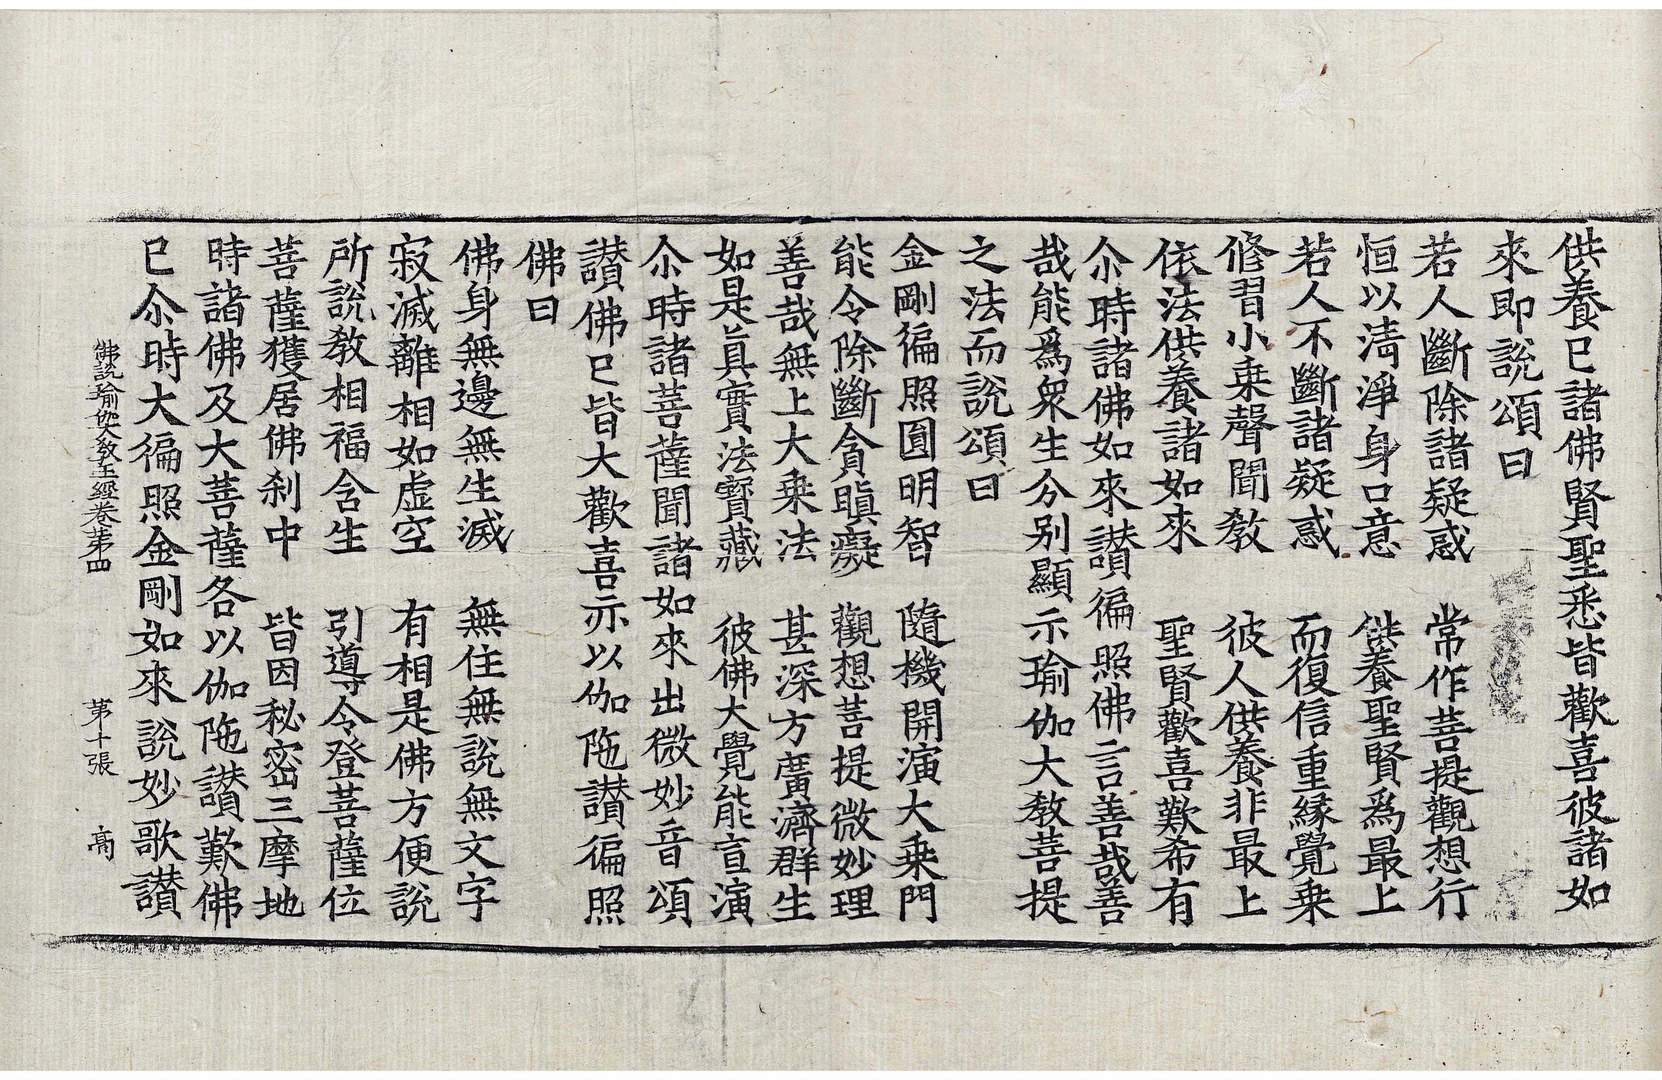 供養已諸佛賢聖悉皆歡喜彼諸如
來即說頌曰
若人斷除諸疑惑　常作菩提觀想行
恒以清淨身口意　供養聖賢爲最上
若人不斷諸疑惑　而復信重緣覺乗
修習小乗聲聞教　彼人供養非最上
依法供養諸如來　聖賢歡喜歎希有
尒時諸佛如來讃徧照佛言善哉善
哉能爲衆生分別顯示瑜伽大教菩提
之法而說頌曰
金剛徧照圓明智　隨機開演大乗門
能令除斷貪瞋癡　觀想菩提微妙理
善哉無上大乗法　甚深方廣濟群生
如是真實法寶藏　彼佛大覺能宣演
尒時諸菩薩聞諸如來出微妙音頌
讃佛已皆大歡喜亦以伽陁讃徧照
佛曰
佛身無邊無生滅　無住無說無文字
寂滅離相如虛空　有相是佛方便說
所說教相福含生　引導令登菩薩位
菩薩獲居佛刹中　皆因秘密三摩地
時諸佛及大菩薩各以伽陁讃歎佛
已尒時大徧照金剛如來說妙歌讃
佛說瑜伽大教王經卷第四　第十張